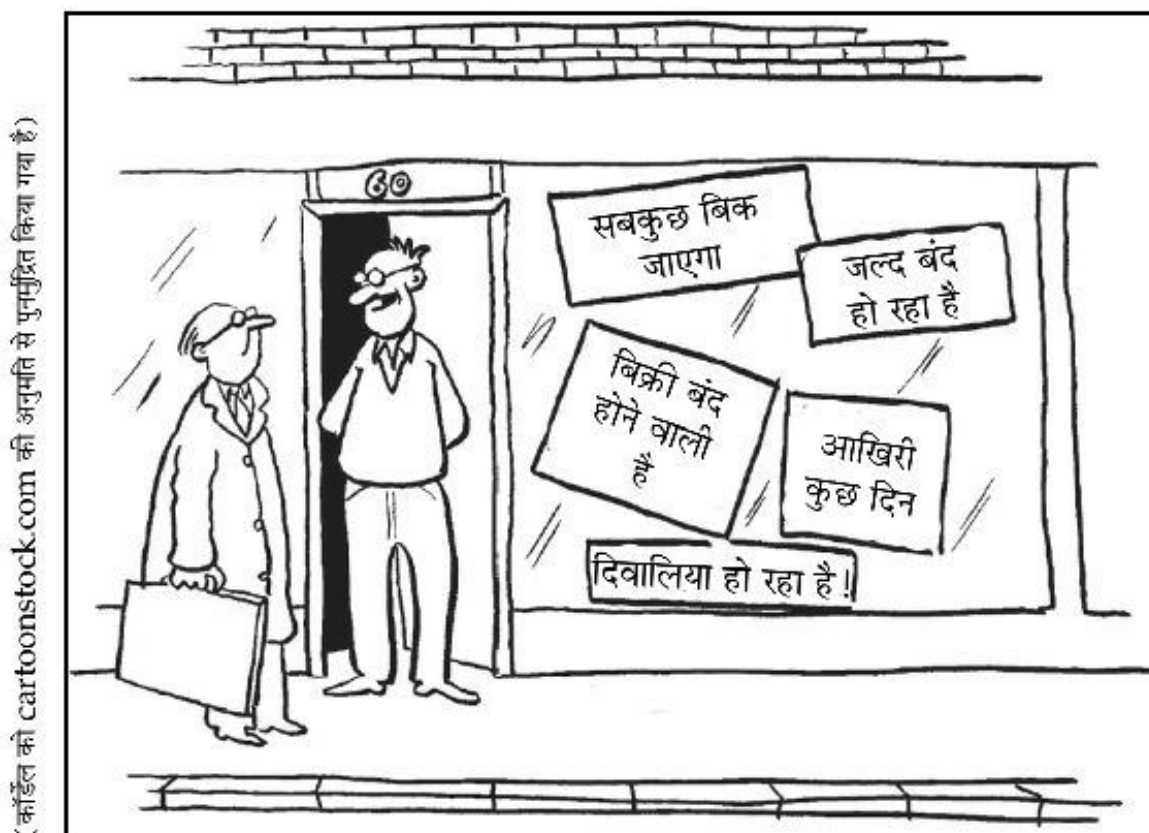 (कॉर्डेल को cartoonstock.com की अनुमति से पुनर्मुद्रित किया गया है)
60
सबकुछ बिक
जाएगा
जल्द बंद
हो रहा है
बिक्री बंद
होने वाली
है
आखिरी
कुछ दिन
दिवालिया हो रहा है!